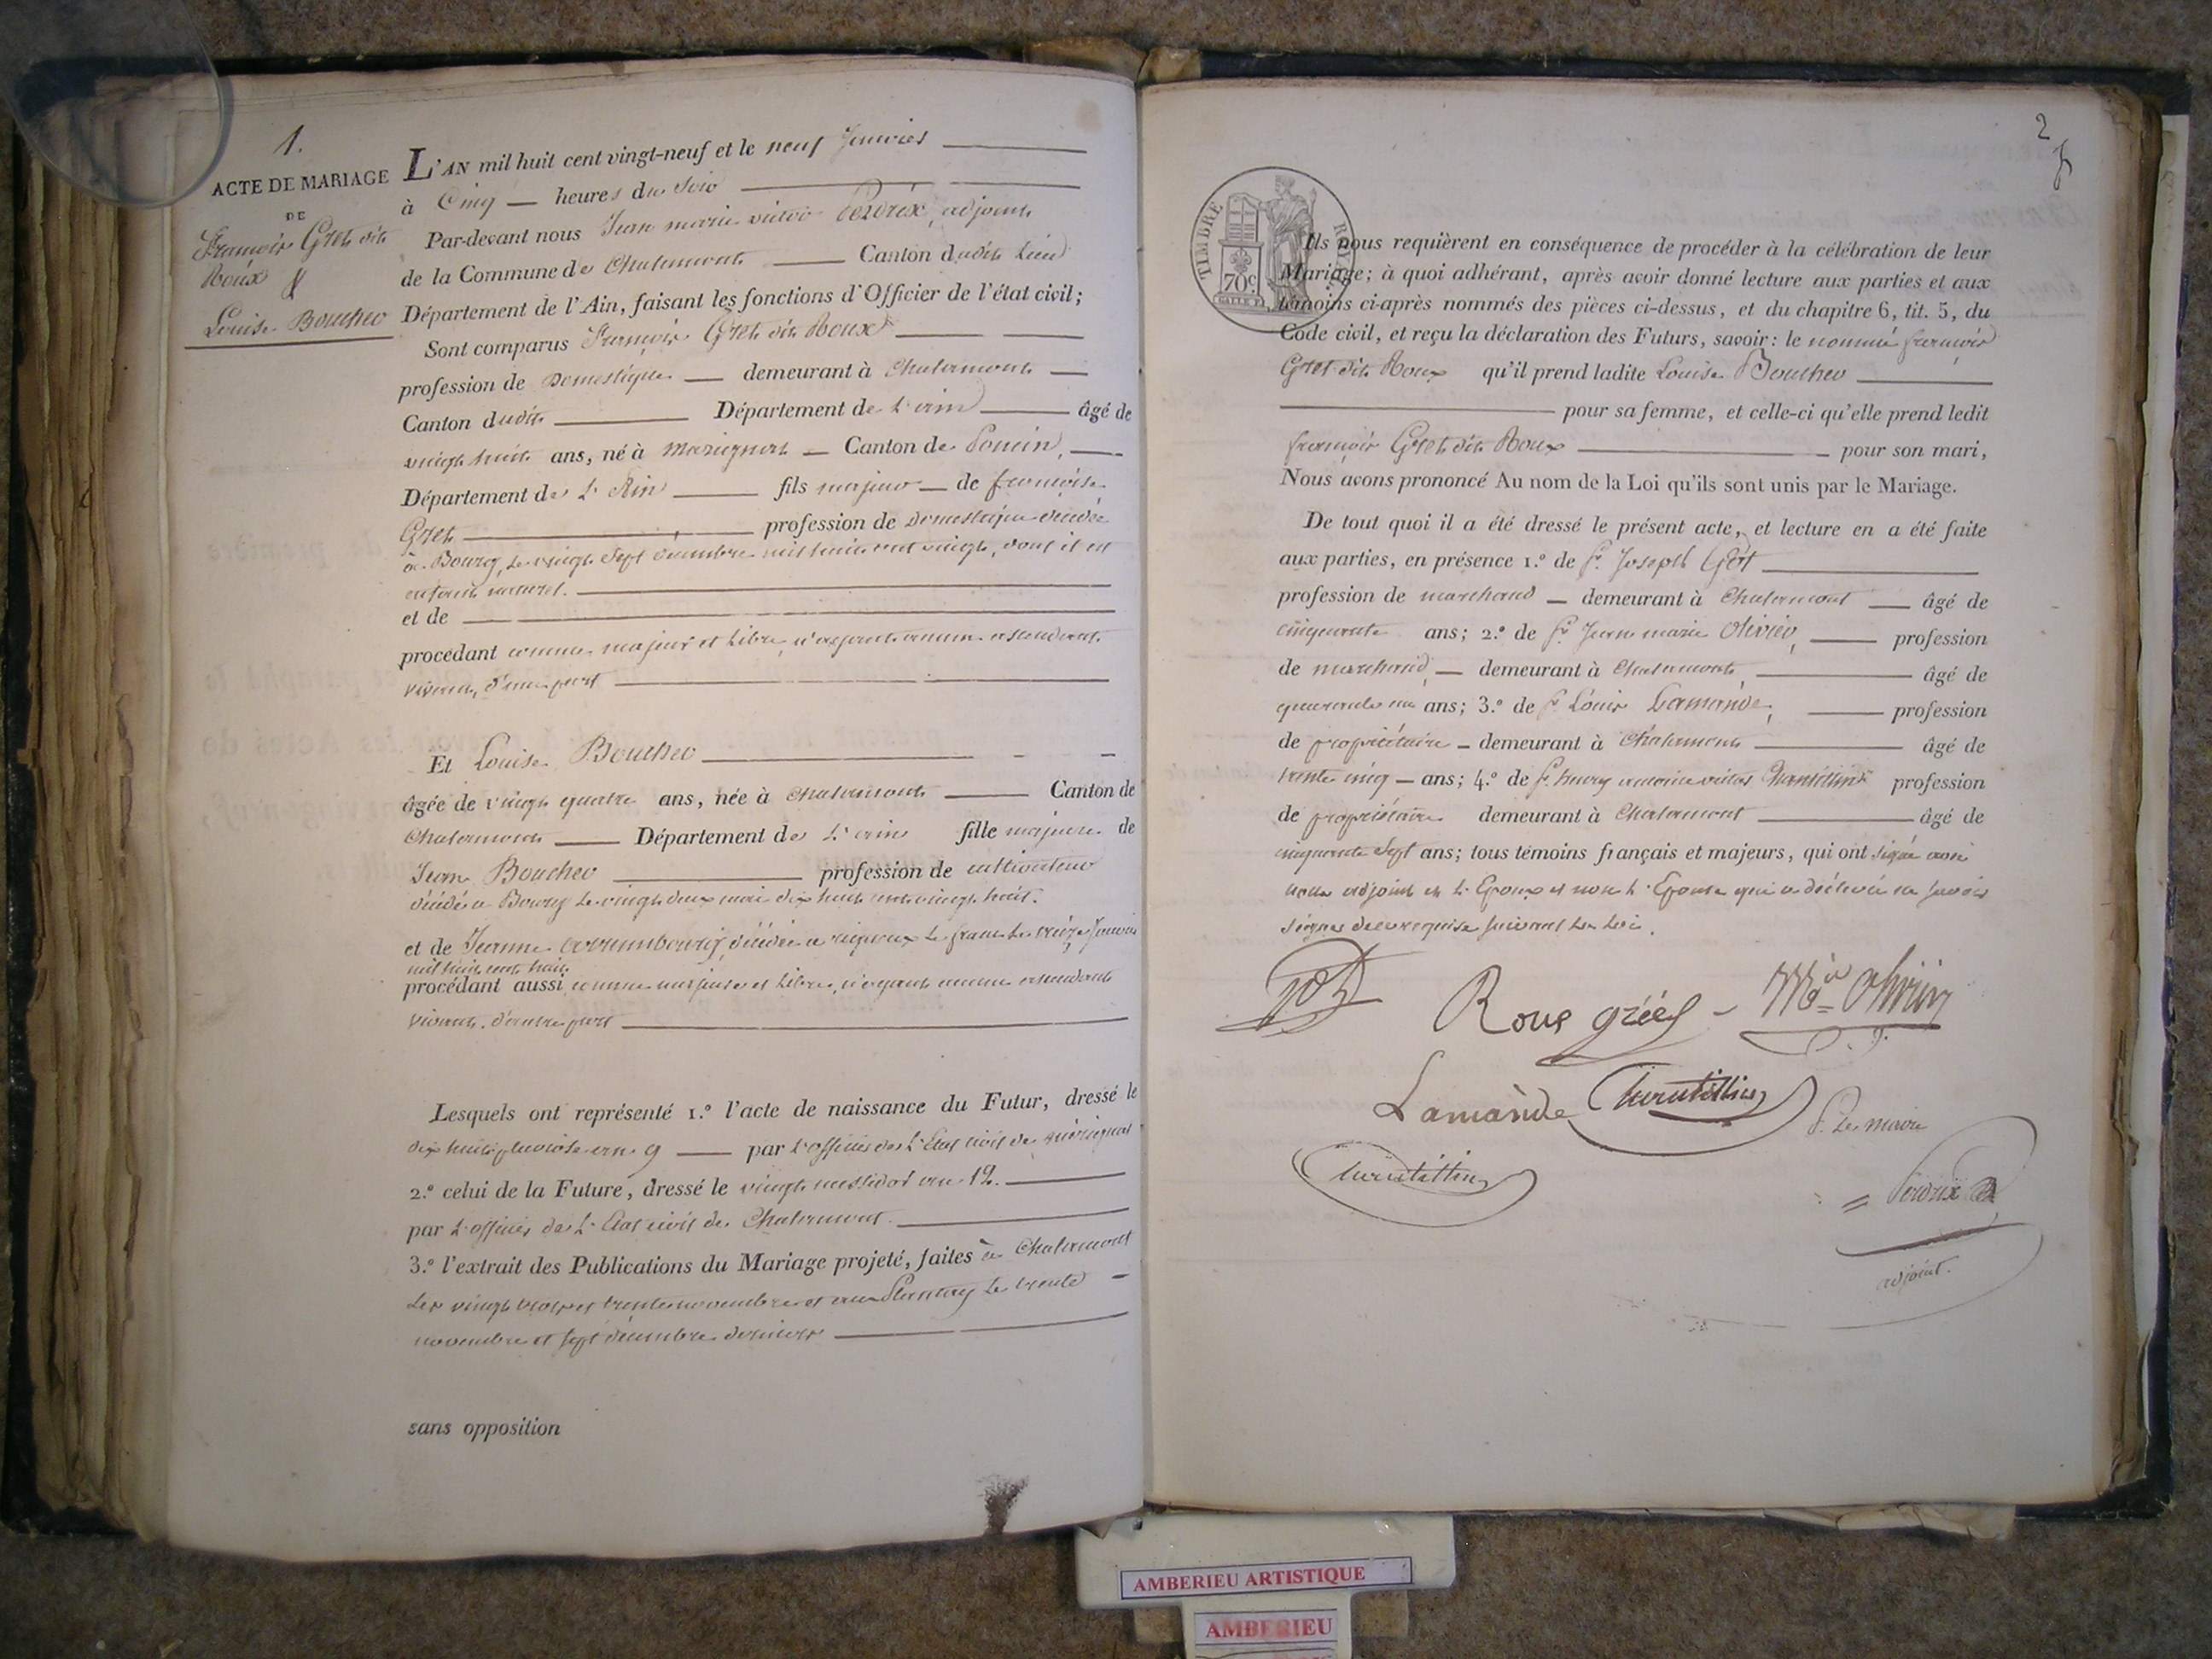 1.
ACTE DE MARIAGE
DE
François Gret dit
Roux &
Louise Boucher
L'AN mil huit cent vingt-neuf et le neuf Janvier
à Cinq heures du Soir
Par-devant nous Jean marie victor Perdrix, adjoint
de la Commune de Chalamont Canton dudit Lieu
Département de l'Ain, faisant les fonctions d'Officier de l'état civil;
Sont comparus François Gret dit Roux
profession de Domestique demeurant à Chalamont
Canton dudit Département de L'ain âgé de
vingt huit ans, né à Marignat Canton de Poncin,
Département de L'Ain fils majeur de françoise
Gret profession de Domestique décédée
à Bourg, Le vingt Sept décembre mil huit cent vingt, dont il est
enfant naturel.
et de
procédant comme majeur et Libre, n'ayant aucun ascendant
vivant, d'une part
Et Louise Boucher
âgée de vingt quatre ans, née à Chalamont Canton de
Chalamont Département de L'ain fille majeure de
Jean Boucher profession de cultivateur
décédé a Bourg Le vingt deux mai dix huit cent vingt huit.
et de Jeanne décédée a rigneux Le franc Le treize Janvier
mil huit cent huit
procédant aussi comme majeure et Libre, n'ayant aucun ascendant
vivant. d'autre part
Lesquels ont représenté 1.º l'acte de naissance du Futur, dressé le
dix huit pluviose an 9 par L'officier de L'Etat civil de Mérignat
2.º celui de la Future, dressé le vingt messidor an 12.
par L'officier de L'Etat civil de Chalamont.
3.º l'extrait des Publications du Mariage projeté, faites à Chalamont
Les vingt trois et trente novembre et au Plantay Le trente
novembre et sept décembre derniers
sans opposition
2
TIMBRE ROYAL
70c
Ils nous requièrent en conséquence de procéder à la célébration de leur
Mariage; à quoi adhérant, après avoir donné lecture aux parties et aux
témoins ci-après nommés des pièces ci-dessus, et du chapitre 6, tit. 5, du
Code civil, et reçu la déclaration des Futurs, savoir: le nommé françois
Gret dit Roux qu'il prend ladite Louise Boucher
pour sa femme, et celle-ci qu'elle prend ledit
françois Gret dit Roux pour son mari,
Nous avons prononcé Au nom de la Loi qu'ils sont unis par le Mariage.
De tout quoi il a été dressé le présent acte, et lecture en a été faite
aux parties, en présence 1.º de Sr. Joseph Got
profession de marchand demeurant à Chalamont âgé de
cinquante ans; 2.º de Sr. Jean marie Olivier, profession
de marchand, demeurant à Chalamont, âgé de
quarante un ans; 3.º de Sr Louis Lamande, profession
de propriétaire demeurant à Chalamont âgé de
trente cinq ans; 4.º de Sr. henry antoine victor profession
de propriétaire demeurant à Chalamont âgé de
cinquante Sept ans; tous témoins français et majeurs, qui ont signé avec
nous adjoint et L'Epoux et non L'Epouse qui a déclaré ne savoir
signer de ce requise suivant La Loi.
Got
Mie Olivier
Lamande
P. Le maire
Perdrix
adjoint.
AMBERIEU ARTISTIQUE
AMBERIEU